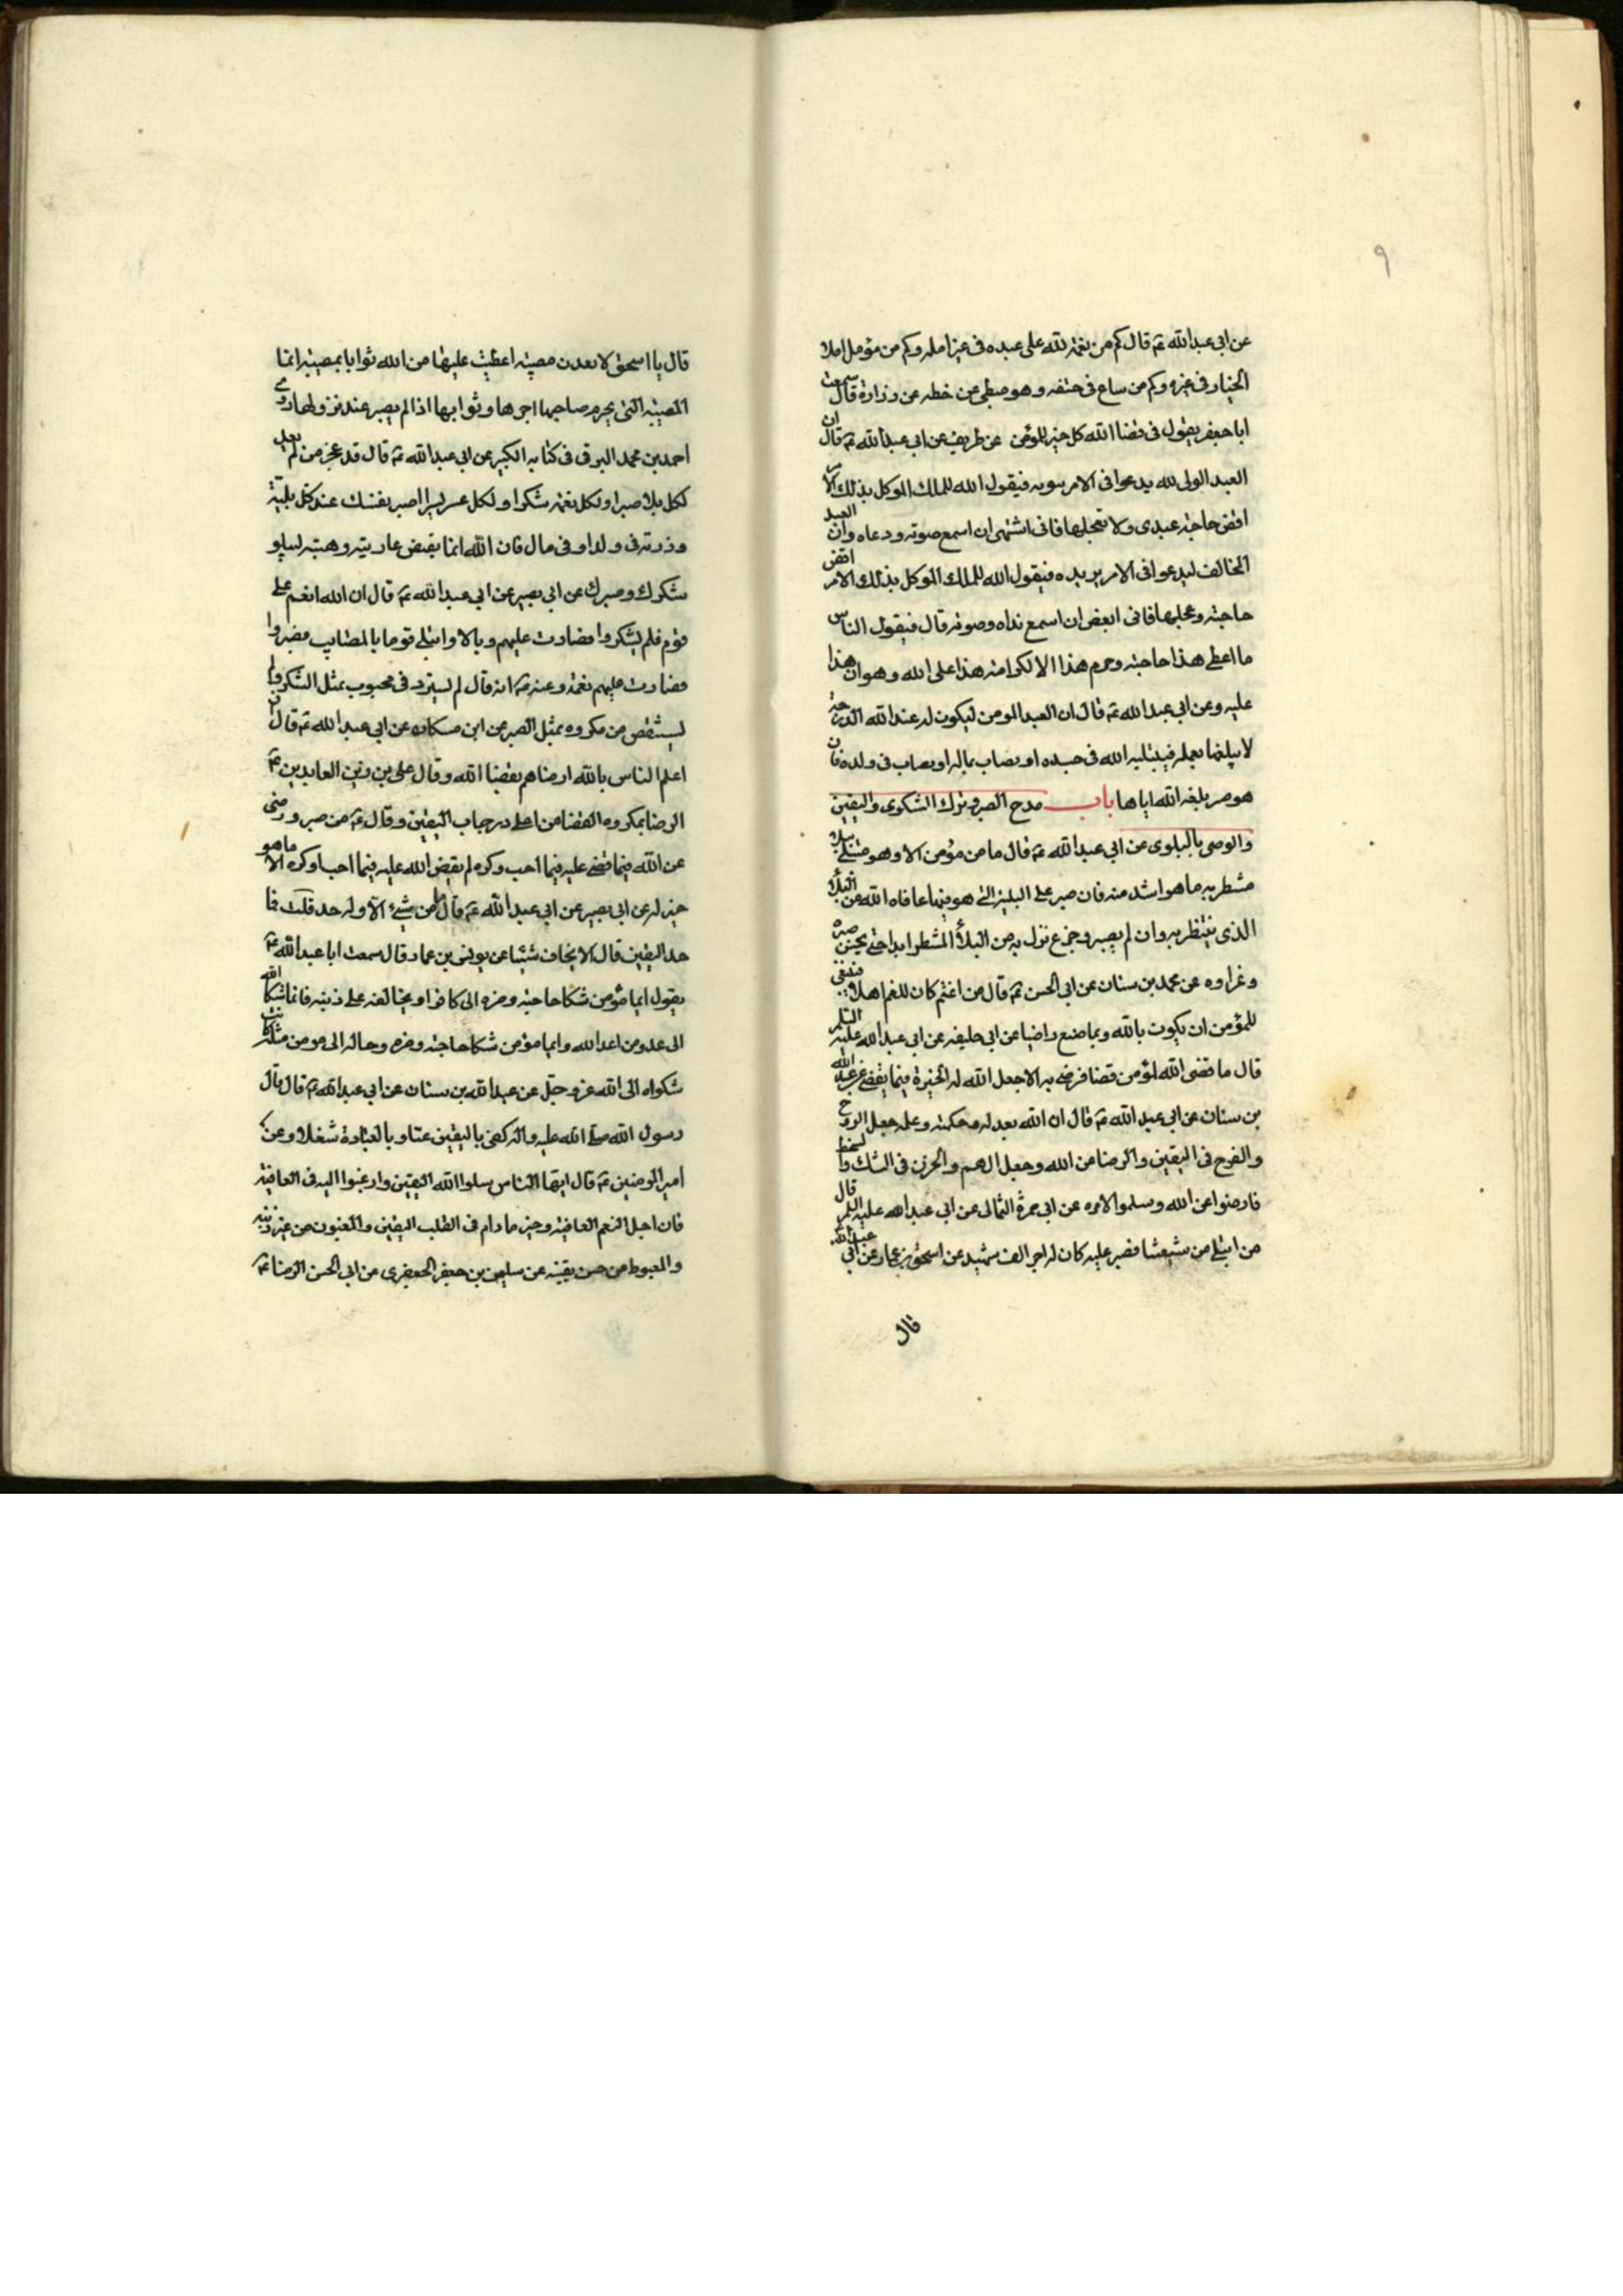 ٩
عن ابي عبد الله ع قال كم من نعمة لله على عبده في غير امله وكم من مؤمل املا
الخيار في غيره وكم من ساع في حتفه وهو مبطئ عن حظه عن زرارة قال سمعت
ابا جعفر يقول في قضا الله كل خير للمؤمن عن ظريف عن ابي عبد الله ع قال ان
العبد الولي لله يدعوا في الامر ينوبه فيقول الله للملك الموكل بذلك الامر
اقض حاجة عبدي ولا تعجلها فاني اشتهي ان اسمع صوته ودعاه وان العبد
المخالف ليدعوا في الامر يريده فيقول الله للملك الموكل بذلك الامر اقض
حاجته وعجلها فاني ابغض ان اسمع نداه وصوته قال فيقول الناس
ما اعطي هذا حاجته وحرم هذا الا لكرامة هذا على الله وهوان هذا
عليه وعن ابي عبد الله ع قال ان العبد المومن ليكون له عند الله الدرجة
لا يبلغها بعمله فيبتليه الله في جسده او يصاب بماله او يصاب في ولده فان
هو صبر بلغه الله اياها باب مدح الصبر وترك الشكوى واليقين
والرضى بالبلوى عن ابي عبد الله ع قال ما من مؤمن الا وهو مبتلى ببلاء
منتظر به ما هو اشد منه فان صبر على البلية التي هو فيها عافاه الله عن البلاء
الذي ينتظر به وان لم يصبر وجزع نزل به من البلاء المنتظر ابدا حتى يحسن صبره
وعزاوه عن محمد بن سنان عن ابي الحسن ع قال من اغتم كان للغم اهلا فينبغي
للمؤمن ان يكون بالله وبما صنع راضيا عن ابي خليفة عن ابي عبد الله عليه السلم
قال ما قضى الله لمؤمن قضا فرضي به الا جعل الله له الخيرة فيما يقضي عن عبد الله
بن سنان عن ابي عبد الله ع قال ان الله بعدله وحكمته وعلمه جعل الروح
والفرح في اليقين والرضا من الله وجعل الهم والحزن في الشك والسخط
فارضوا عن الله وسلموا لامره عن ابي حمزة الثمالي عن ابي عبد الله عليه السلم قال
من ابتلي من شيعتنا فصبر عليه كان له اجر الف شهيد عن اسحق بن عمار عن ابي عبد الله
قال
قال يا اسحق لا تعدن مصيبة اعطيت عليها من الله ثوابا بمصيبة انما
المصيبة التي يحرم صاحبها اجرها وثوابها اذا لم يصبر عند نزولها روى
احمد بن محمد البرقي في كتابه الكبير عن ابي عبد الله ع قال قد عجز من لم يعد
لكل بلاء صبرا ولكل نعمة شكرا ولكل عسر يسرا اصبر نفسك عند كل بلية
ورزية في ولد او في مال فان الله انما يقبض عاريته وهبته ليبلو
شكرك وصبرك عن ابي بصير عن ابي عبد الله ع قال ان الله انعم على
قوم فلم يشكروا فصارت عليهم وبالا وابتلى قوما بالمصايب فصبروا
فصارت عليهم نعمة وعنه ع انه قال لم يستزد في محبوب بمثل الشكر ولم
يستنقص من مكروه بمثل الصبر عن ابن مسكان عن ابي عبد الله ع قال ان
اعلم الناس بالله ارضاهم بقضا الله وقال علي بن زين العابدين ع
الرضا بمكروه القضا من اعلى درجات اليقين وقال ع من صبر ورضي
عن الله فيما قضى عليه فيما احب وكره لم يقض الله عليه فيما احب او كره الا ما هو
خير له عن ابي بصير عن ابي عبد الله ع قال ما من شيء الا وله حد قلت فما
حد اليقين قال الا يخاف شيئا عن يونس بن عمار قال سمعت ابا عبد الله ع
يقول ايما مؤمن شكا حاجته وضره الى كافر او يخالفه على دينه فانما شكا الله
الى عدو من اعدا الله وايما مؤمن شكا حاجته وضره وحاله الى مومن مثله كانت
شكواه الى الله عز وجل عن عبد الله بن سنان عن ابي عبد الله ع قال قال
رسول الله صلى الله عليه واله كفى باليقين غنا وبالعبادة شغلا وعن
امير المومنين ع قال ايها الناس سلوا الله اليقين وارغبوا اليه في العافية
فان اجل النعم العافية وخير ما دام في القلب اليقين والمغبون من غبن دينه
والمغبوط من حسن يقينه عن سليمن بن جعفر الجعفري عن ابي الحسن الرضا ع